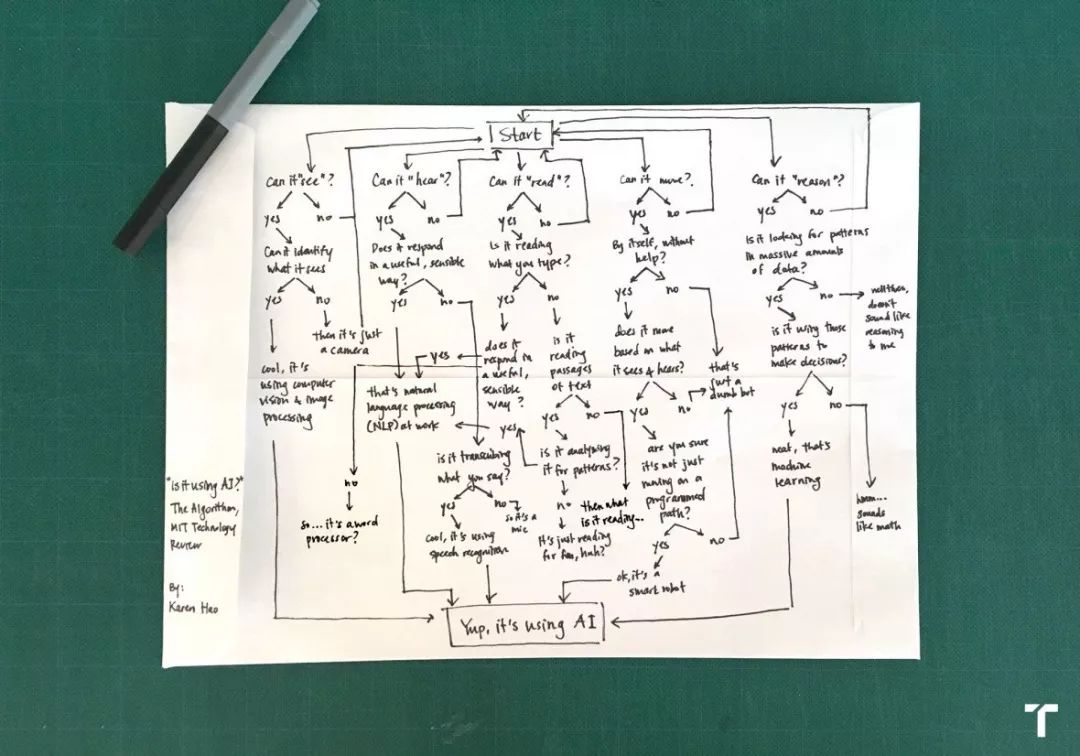 Start
Can it "see"?
yes
no
Can it identify
what it sees
yes
no
then it's just
a camera
cool, it's
using computer
vision & image
processing
Can it "hear"?
yes
no
Does it respond
in a useful, sensible
way?
yes
no
that's natural
language processing
(NLP) at work
is it transcribing
what you say?
yes
no
so it's a
mic
Cool, it's using
speech recognition
Can it "read"?
yes
no
Is it reading
what you type?
yes
no
does it
respond in
a useful,
sensible
way?
yes
no
so... it's a word
processor?
is it
reading
passages
of text
yes
no
then what
is it reading...
is it analyzing
it for patterns?
yes
no
It's just reading
for fun, huh?
Can it move?
yes
no
By itself, without
help?
yes
no
does it move
based on what
it sees & hears?
yes
no
that's
just a
dumb bot
are you sure
it's not just
moving on a
programmed
path?
yes
no
ok, it's a
smart robot
Can it "reason"?
yes
no
Is it looking for patterns
in massive amounts
of data?
yes
no
well then,
doesn't
sound like
reasoning
to me
is it using those
patterns to
make decisions?
yes
no
neat, that's
machine
learning
hmm...
sounds
like math
Yup, it's using AI
"Is it using AI?"
The Algorithm,
MIT Technology
Review
By:
Karen Hao